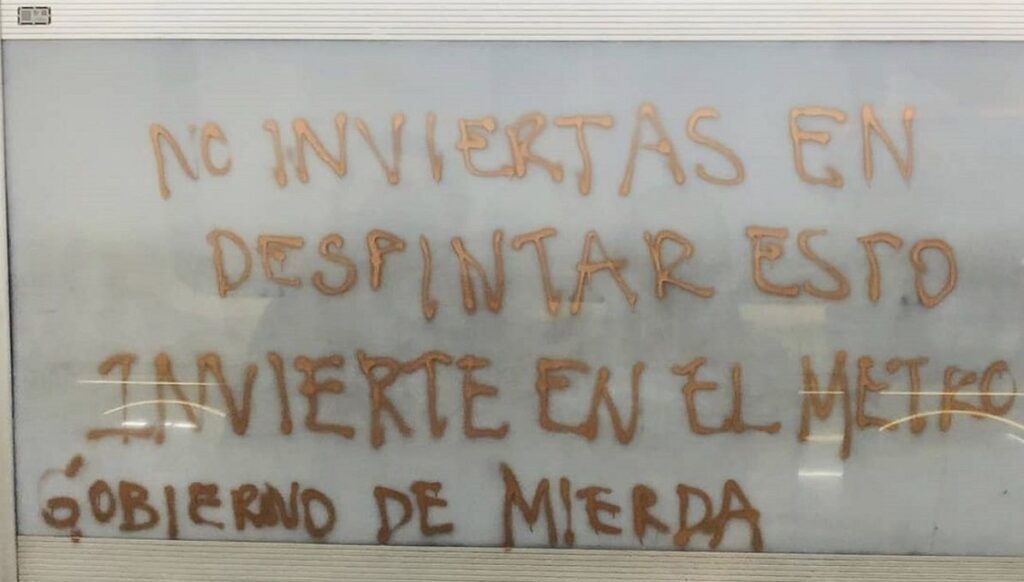 NO INVIERTAS EN
DESPINTAR ESTO
INVIERTE EN EL METRO
GOBIERNO DE MIERDA